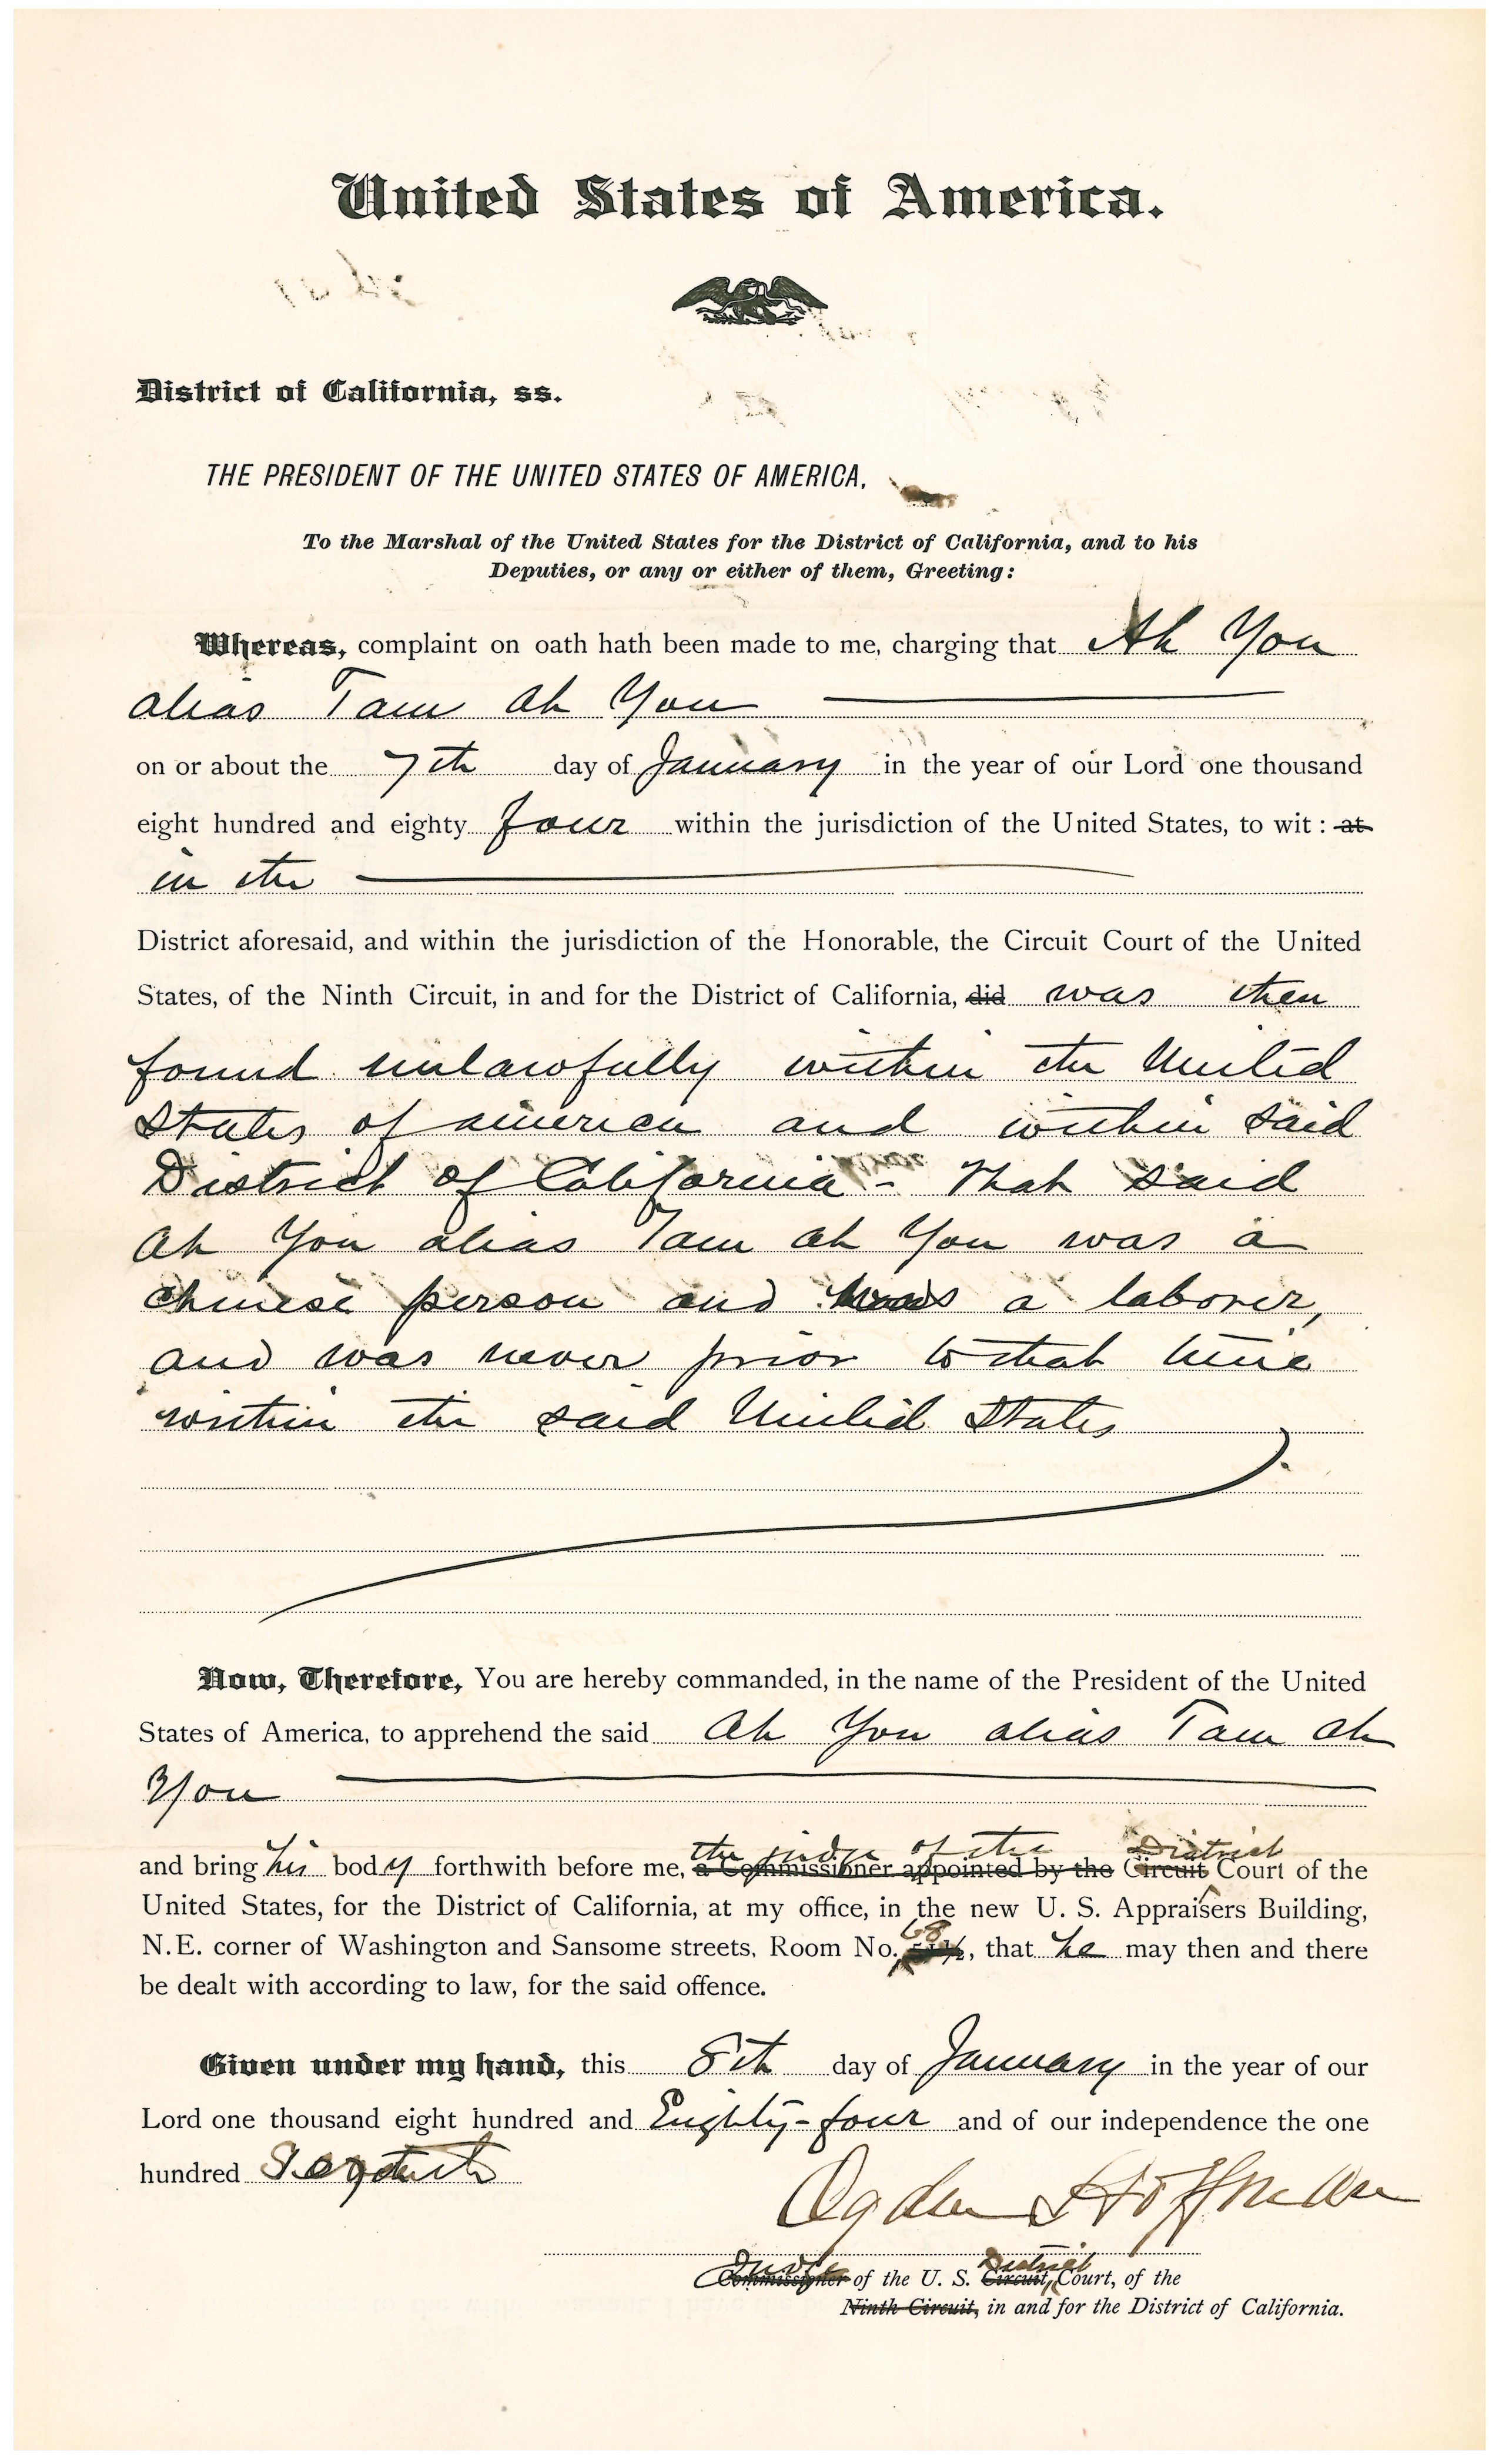 United States of America.
District of California, ss.
THE PRESIDENT OF THE UNITED STATES OF AMERICA,
To the Marshal of the United States for the District of California, and to his
Deputies, or any or either of them, Greeting:
Whereas, complaint on oath hath been made to me, charging that Ah You
alias Tam Ah You
on or about the 7th day of January in the year of our Lord one thousand
eight hundred and eighty four within the jurisdiction of the United States, to wit: at
in the
District aforesaid, and within the jurisdiction of the Honorable, the Circuit Court of the United
States, of the Ninth Circuit, in and for the District of California, did was then
found unlawfully within the United
States of america and within said
District of California - That said
Ah You alias Tam Ah You was a
Chinese person and was a laborer,
and was never prior to that time
within the said United States
Now, Therefore, You are hereby commanded, in the name of the President of the United
States of America, to apprehend the said Ah You alias Tam Ah
You
the judge of the District
and bring his body forthwith before me, a Commissioner appointed by the Circuit Court of the
United States, for the District of California, at my office, in the new U. S. Appraisers Building,
68
N.E. corner of Washington and Sansome streets, Room No. 51½, that he may then and there
be dealt with according to law, for the said offence.
Given under my hand, this 8th day of January in the year of our
Lord one thousand eight hundred and Eighty-four and of our independence the one
hundred
Ogden Hoffman
Judge District
Commissioner of the U. S. Circuit Court, of the
Ninth Circuit, in and for the District of California.